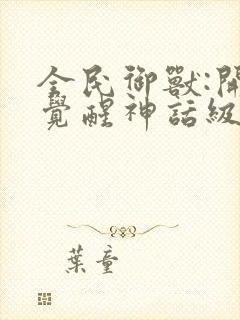 全民御獸:開
覺醒神話級
葉童